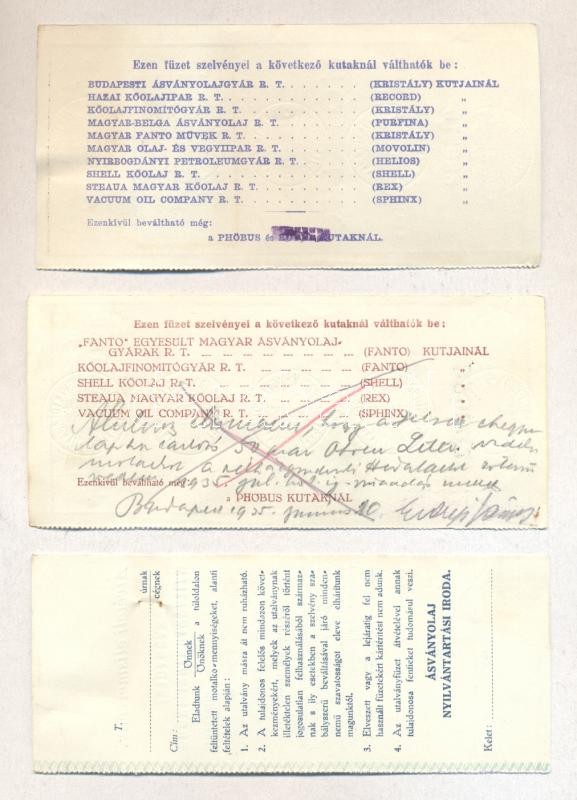 Ezen füzet szelvényei a következő kutaknál válthatók be :
BUDAPESTI ÁSVÁNYOLAJGYÁR R. T. . . . . . . (KRISTÁLY) KUTJAINÁL
HAZAI KŐOLAJIPAR R. T. . . . . . . . . . . (RECORD) „
KŐOLAJFINOMÍTÓGYÁR R. T. . . . . . . . . (KRISTÁLY) „
MAGYAR-BELGA ÁSVÁNYOLAJ R. T. . . . . . . (PURFINA) „
MAGYAR FANTO MŰVEK R. T. . . . . . . . . (KRISTÁLY) „
MAGYAR OLAJ- ÉS VEGYIIPAR R. T. . . . . . (MOVOLIN) „
NYIRBOGDÁNYI PETROLEUMGYÁR R. T. . . . . (HELIOS) „
SHELL KŐOLAJ R. T. . . . . . . . . . . . . (SHELL) „
STEAUA MAGYAR KŐOLAJ R. T. . . . . . . . (REX) „
VACUUM OIL COMPANY R. T. . . . . . . . . (SPHINX) „
Ezenkívül beváltható még:
a PHÖBUS és KUTAKNÁL.
Ezen füzet szelvényei a következő kutaknál válthatók be :
„FANTO" EGYESÜLT MAGYAR ÁSVÁNYOLAJ-
GYÁRAK R. T. (FANTO) KUTJAINÁL
KŐOLAJFINOMÍTÓGYÁR R. T. (FANTO) „
SHELL KŐOLAJ R. T. (SHELL) „
STEAUA MAGYAR KŐOLAJ R. T. (REX) „
VACUUM OIL COMPANY R. T. (SPHINX) „
hogy a
Ezenkívül beváltható még:
1935 júl.
a PHÖBUS KUTAKNÁL
Budapest 1935. június 20.
T. úrnak
cégnek
Cím:
Eladtunk Önnek a túloldalon
Önöknek
feltüntetett motalko-mennyiségeket, alanti
feltételek alapján :
1. Az utalvány másra át nem ruházható.
2. A tulajdonos felelős mindazon követ-
kezményekért, melyek az utalványnak
illetéktelen személyek részéről történt
jogosulatlan felhasználásából származ-
nak s ily esetekben a szelvény sza-
bályszerű beváltásával járó minden-
nemű szavatosságot eleve elhárítunk
magunktól.
3. Elveszett vagy a lejáratig fel nem
használt füzetekért kártérítést nem adunk.
4. Az utalványfüzet átvételével annak
tulajdonosa fentieket tudomásul veszi.
ÁSVÁNYOLAJ
NYILVÁNTARTÁSI IRODA.
Kelet: